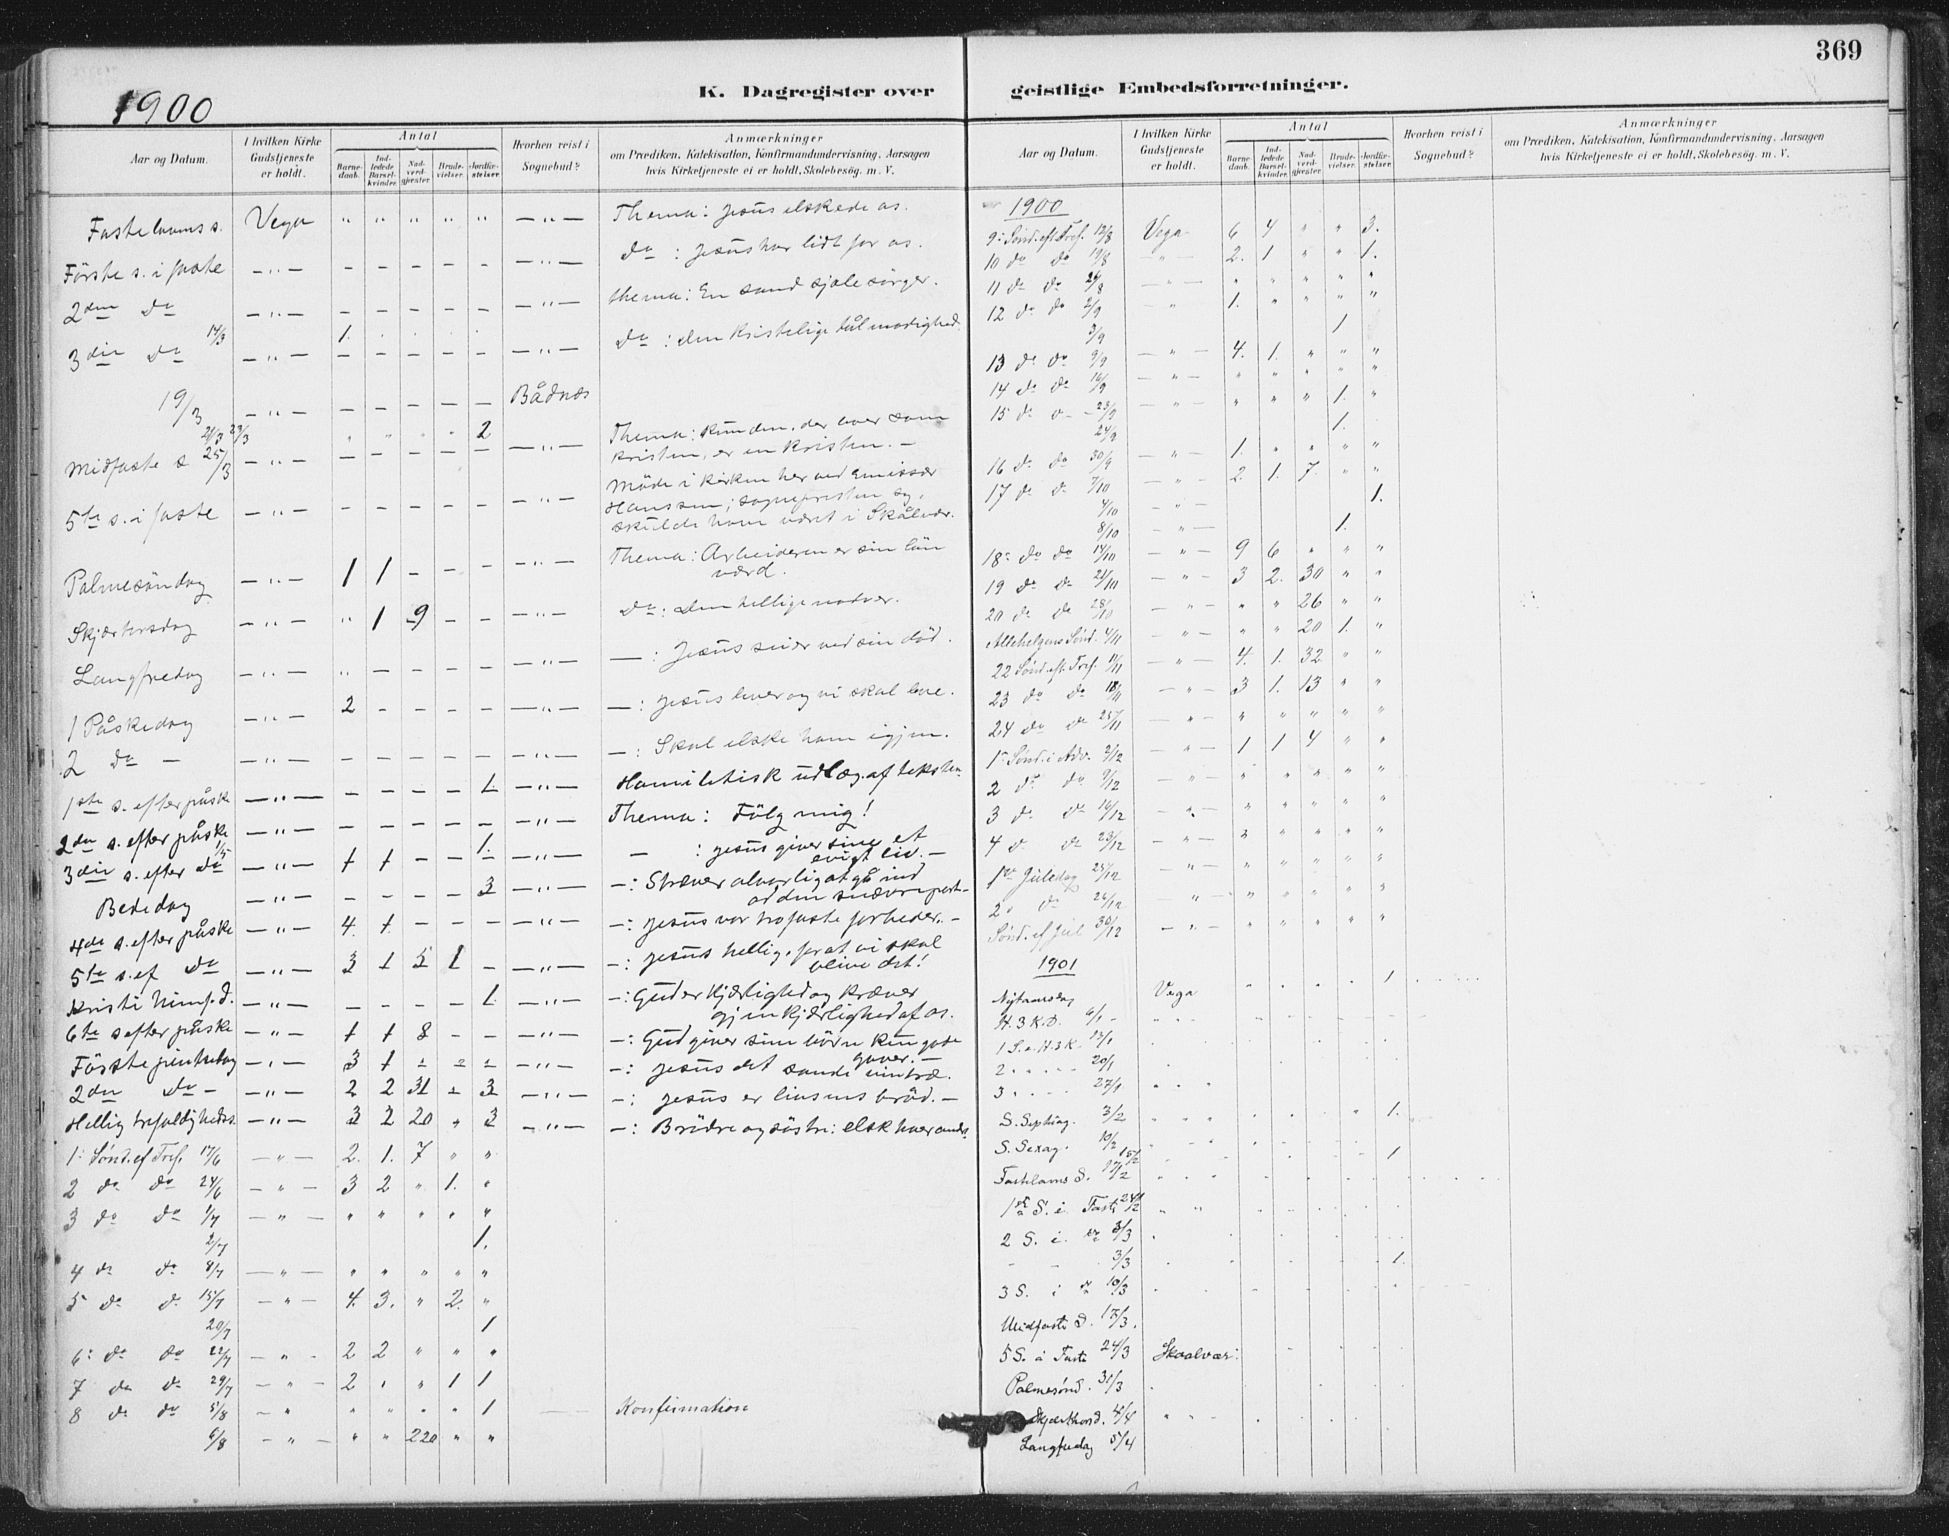 369
K. Dagregister over geistlige Embedsforretninger.
1900
Aar og Datum.
I hvilken Kirke Gudstjeneste er holdt.
Antal
Barnedaab.
Indledede Barselkvinder.
Nadverdgjester
Brudevielser.
Jordfæstelser
Hvorhen reist i Sognebud?
Anmærkninger
om Prædiken, Katekisation, Konfirmandundervisning, Aarsagen
hvis Kirketjeneste ei er holdt, Skolebesøg. m. V.
Fastelavns s. Vega " " " " " — " — Thema: Jesus elskede os.
Første s. i faste — " — - - - - - — " — Do : Jesus har lidt for os.
2den Do — " — - - - - - — " — thema: En sand sjælesørger.
14/3 1.
3die Do — " — - - - - - — " — Do : den kristelige tålmodighed.
19/3 — " — - - - - - Bådnæs
21/3 23/3 2
Midfaste s 25/3 — " — - - - - - — " — Thema: kun den, der lever som
kristen, er en kristen. —
5te s. i faste — " — - - - - - — " — Møde i kirken her ved Emissær
Hanssen; sognepresten sy.
skulde have været i Skålvær.
Palmesöndag — " — 1 1 - - - — " — Thema: Arbeideren er sin lön
værd.
Skjærtorsdag — " — " 1 9 - - — " — Do: Den hellige nadver.
Langfredag — " — " - - - - — " — — : Jesus seier ved sin död.
1 Påskedag — " — 2 - - - - — " — — : Jesus lever og vi skal leve.
2 Do — — " — - - - - - — " — — : Skal elske ham igjen.
1ste s. efter påske — " — - - - - 1. — " — Homiletisk udlæg. af teksten
2den s. efter påske — " — - - - - - — " — Thema: Fölg mig!
1/5 1.
3die s. efter Do — " — 1 1 - - - — " — - : Jesus giver sine et
evigt liv. —
Bededag — " — - - - - 3 — " — —: Stræver alvorlig at gå ind
ad den snævre port—
4de s. efter påske — " — 4. 1. - - - — " — —: Jesus vor trofaste forbeder. —
5te s. ef Do — " — 3 1 5 1 - — " — —: Jesus hellig, for at vi skal
blive det!
Kristi himf. d. — " — - - - - 1. — " — —: Gud er kjærlighed og kræver
gjenkjærlighed af os.
6te s efter påske — " — 1 1 8 - - — " — —: Gud giver sine börn kun gode
gaver. —
Förste pintsedag — " — 3 1 - - - — " — —: Jesus det sande vintræ.
2den Do — — " — 2 2 31 - 3 — " — —: Jesus er livsens bröd. —
Hellig trefoldigheds. — " — 3 2 20 " 3 — " — —: Brödre og söstre: elsk hverandr.
1: Sönd. ef Tref. 17/6 — " — 2. 1. 7 " "
2 do do 24/6 — " — 3 2 " 1. "
3 do do 1/7 — " — " " " " "
2/7 1.
4 do do 8/7 — " — " " " " "
5 do do 15/7 — " — 4. 3. " 2. "
20/7 1
6: do do 22/7 — " — 2 2 " " "
7 do do 29/7 — " — 2 " " 1 1
8 do do 5/8 — " " " " " 1 Konfirmation
6/8 — " — " " 220 " "
Aar og Datum.
I hvilken Kirke Gudstjeneste er holdt.
Antal
Barnedaab.
Indledede Barselkvinder.
Nadverdgjester
Brudevielser.
Jordfæstelser
Hvorhen reist i Sognebud?
Anmærkninger
om Prædiken, Katekisation, Konfirmandundervisning, Aarsagen
hvis Kirketjeneste ei er holdt, Skolebesög. m. V.
1900
9: Sönd. eft Tref. 12/8 Vega 6 4 " " 3.
10 do do 19/8 — " — 2. 1 " " 1.
11 do do 26/8 — " — " " " " "
12 do do 2/9 — " 1. " " " "
3/9 1
13 do do 9/9 — " — 4. 1. " " "
14 do do 16/9 — " — " " " " "
15 do 23/9 — " — " " " 1. "
24/9 1.
16 do do 30/9 — " — 1. " " " "
17 do do 7/10 — " — 2. 1. 7 " "
4/10 — " — 1.
8/10 — " — 1.
18: do do 14/10 — " — 9 6 " " "
19 do do 21/10 — " — 3 2. 30 " "
20 do do 28/10 — " — " " 26 " "
Allehelgens Sönd. 4/11 — " — " " 20 1. "
22 Sönd. eft. Tref. 11/11 — " — 4. 1. 32 " "
23 do do 18/11 — " — 3 1. 13 " "
24 do do 25/11 — " — " " " " "
1: Sönd. i Adv. 2/12 — " — 1 1 4 " "
2 do do 9/12 — " — " " " " "
3 do do 16/12 — " — " " " " "
4 do do 23/12 — " — " " " " "
1ste Juledag 25/12 — " — " " " " "
2 do 26/12 — " — " " " " "
Sönd. ef Jul 30/12 — " — " " " " "
1901
Nytaarsdag Vega " " " " 1
H. 3 K. D. 6/1 —
1 S. e. H. 3 K. 13/1
2 " 20/1
3 " 27/1 " " "
S. Septuag. 3/2 1.
S. Sexag. 10/2
15/2 1
Fastelavns S. 17/2
1ste S. i Faste 24/2 " "
2 S. i do 3/3
- - 3/3 1.
3 S. i do 10/3
Midfaste S. 17/3.
5 S. i Faste 24/3 Skaalvær:
Palmesönd. 31/3
Skjærthorsd. 4/4
Langfredag 5/4